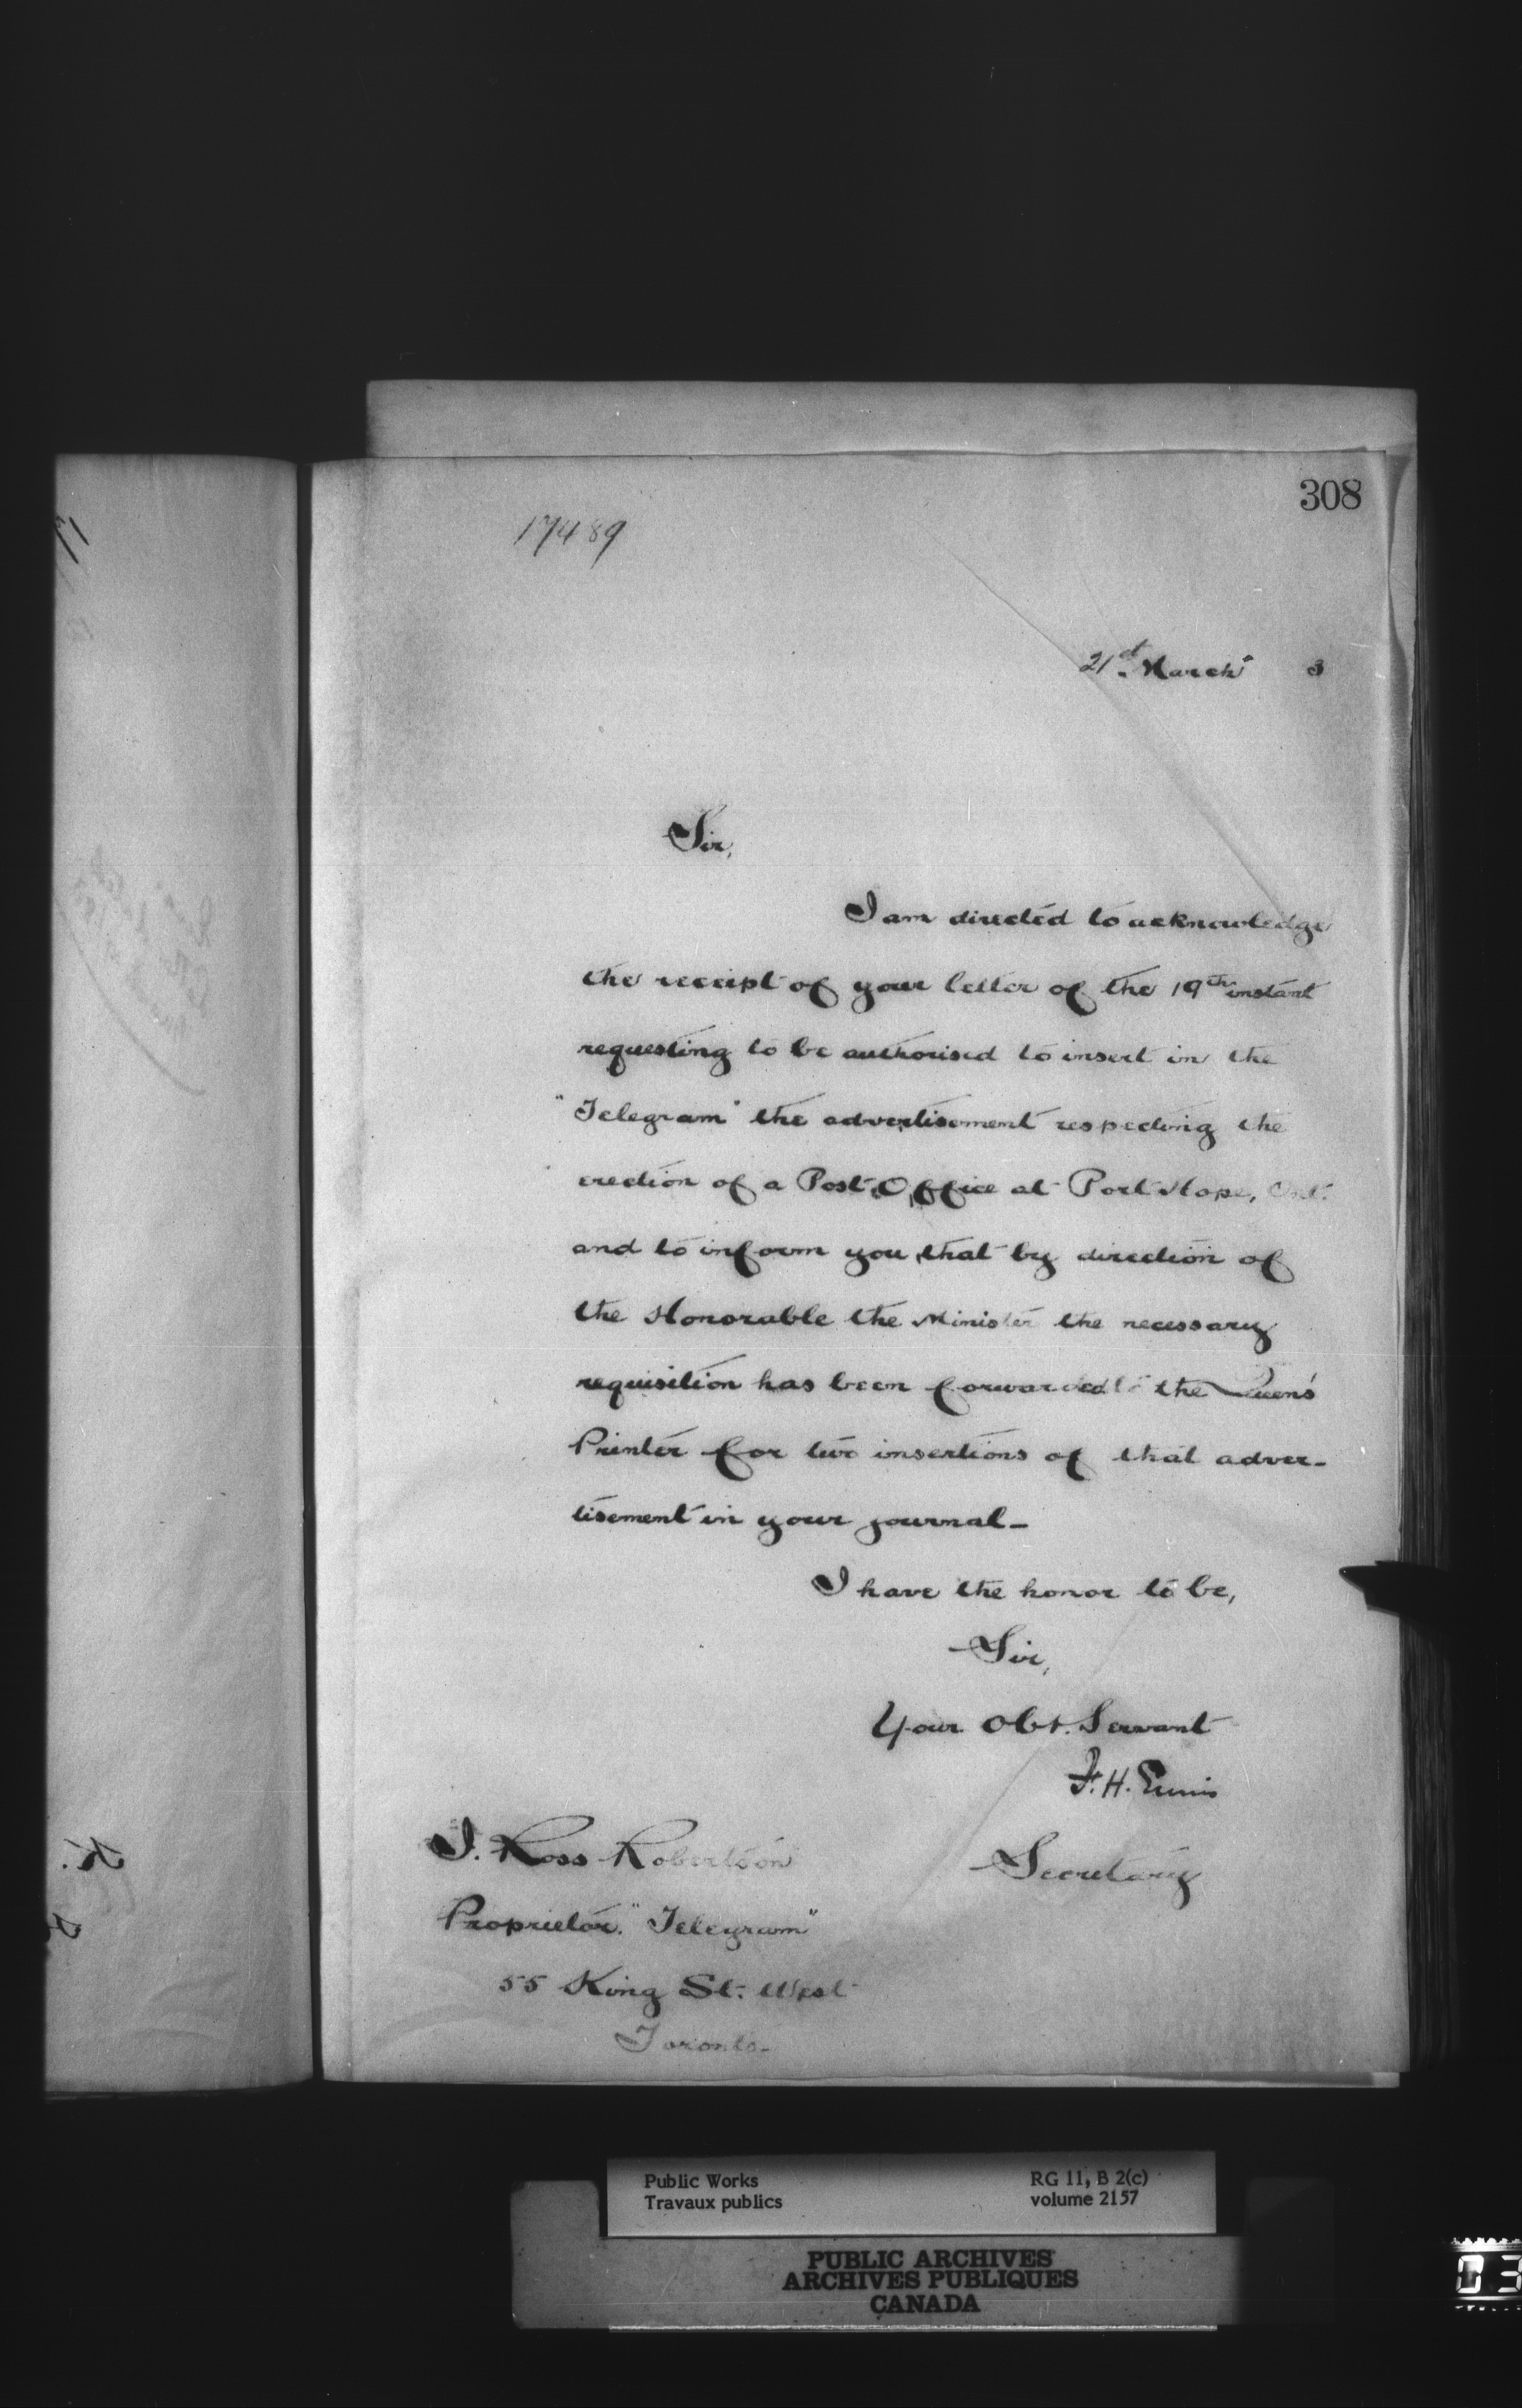 308
17489
21st March 3
Sir,
I am directed to acknowledge
the receipt of your letter of the 19th instant
requesting to be authorised to insert in the
"Telegram" the advertisement respecting the
erection of a Post Office at Port Hope, Ont.
and to inform you that by direction of
the Honorable the Minister the necessary
requisition has been forwarded to the Queen's
Printer for two insertions of that adver-
tisement in your journal-
I have the honor to be,
Sir,
Your Obt. Servant
F. H. Ennis
Secretary
J. Ross Robertson
Proprietor "Telegram"
55 King St. West
Toronto-
Public Works
Travaux publics
RG 11, B 2(c)
volume 2157
PUBLIC ARCHIVES
ARCHIVES PUBLIQUES
CANADA
03